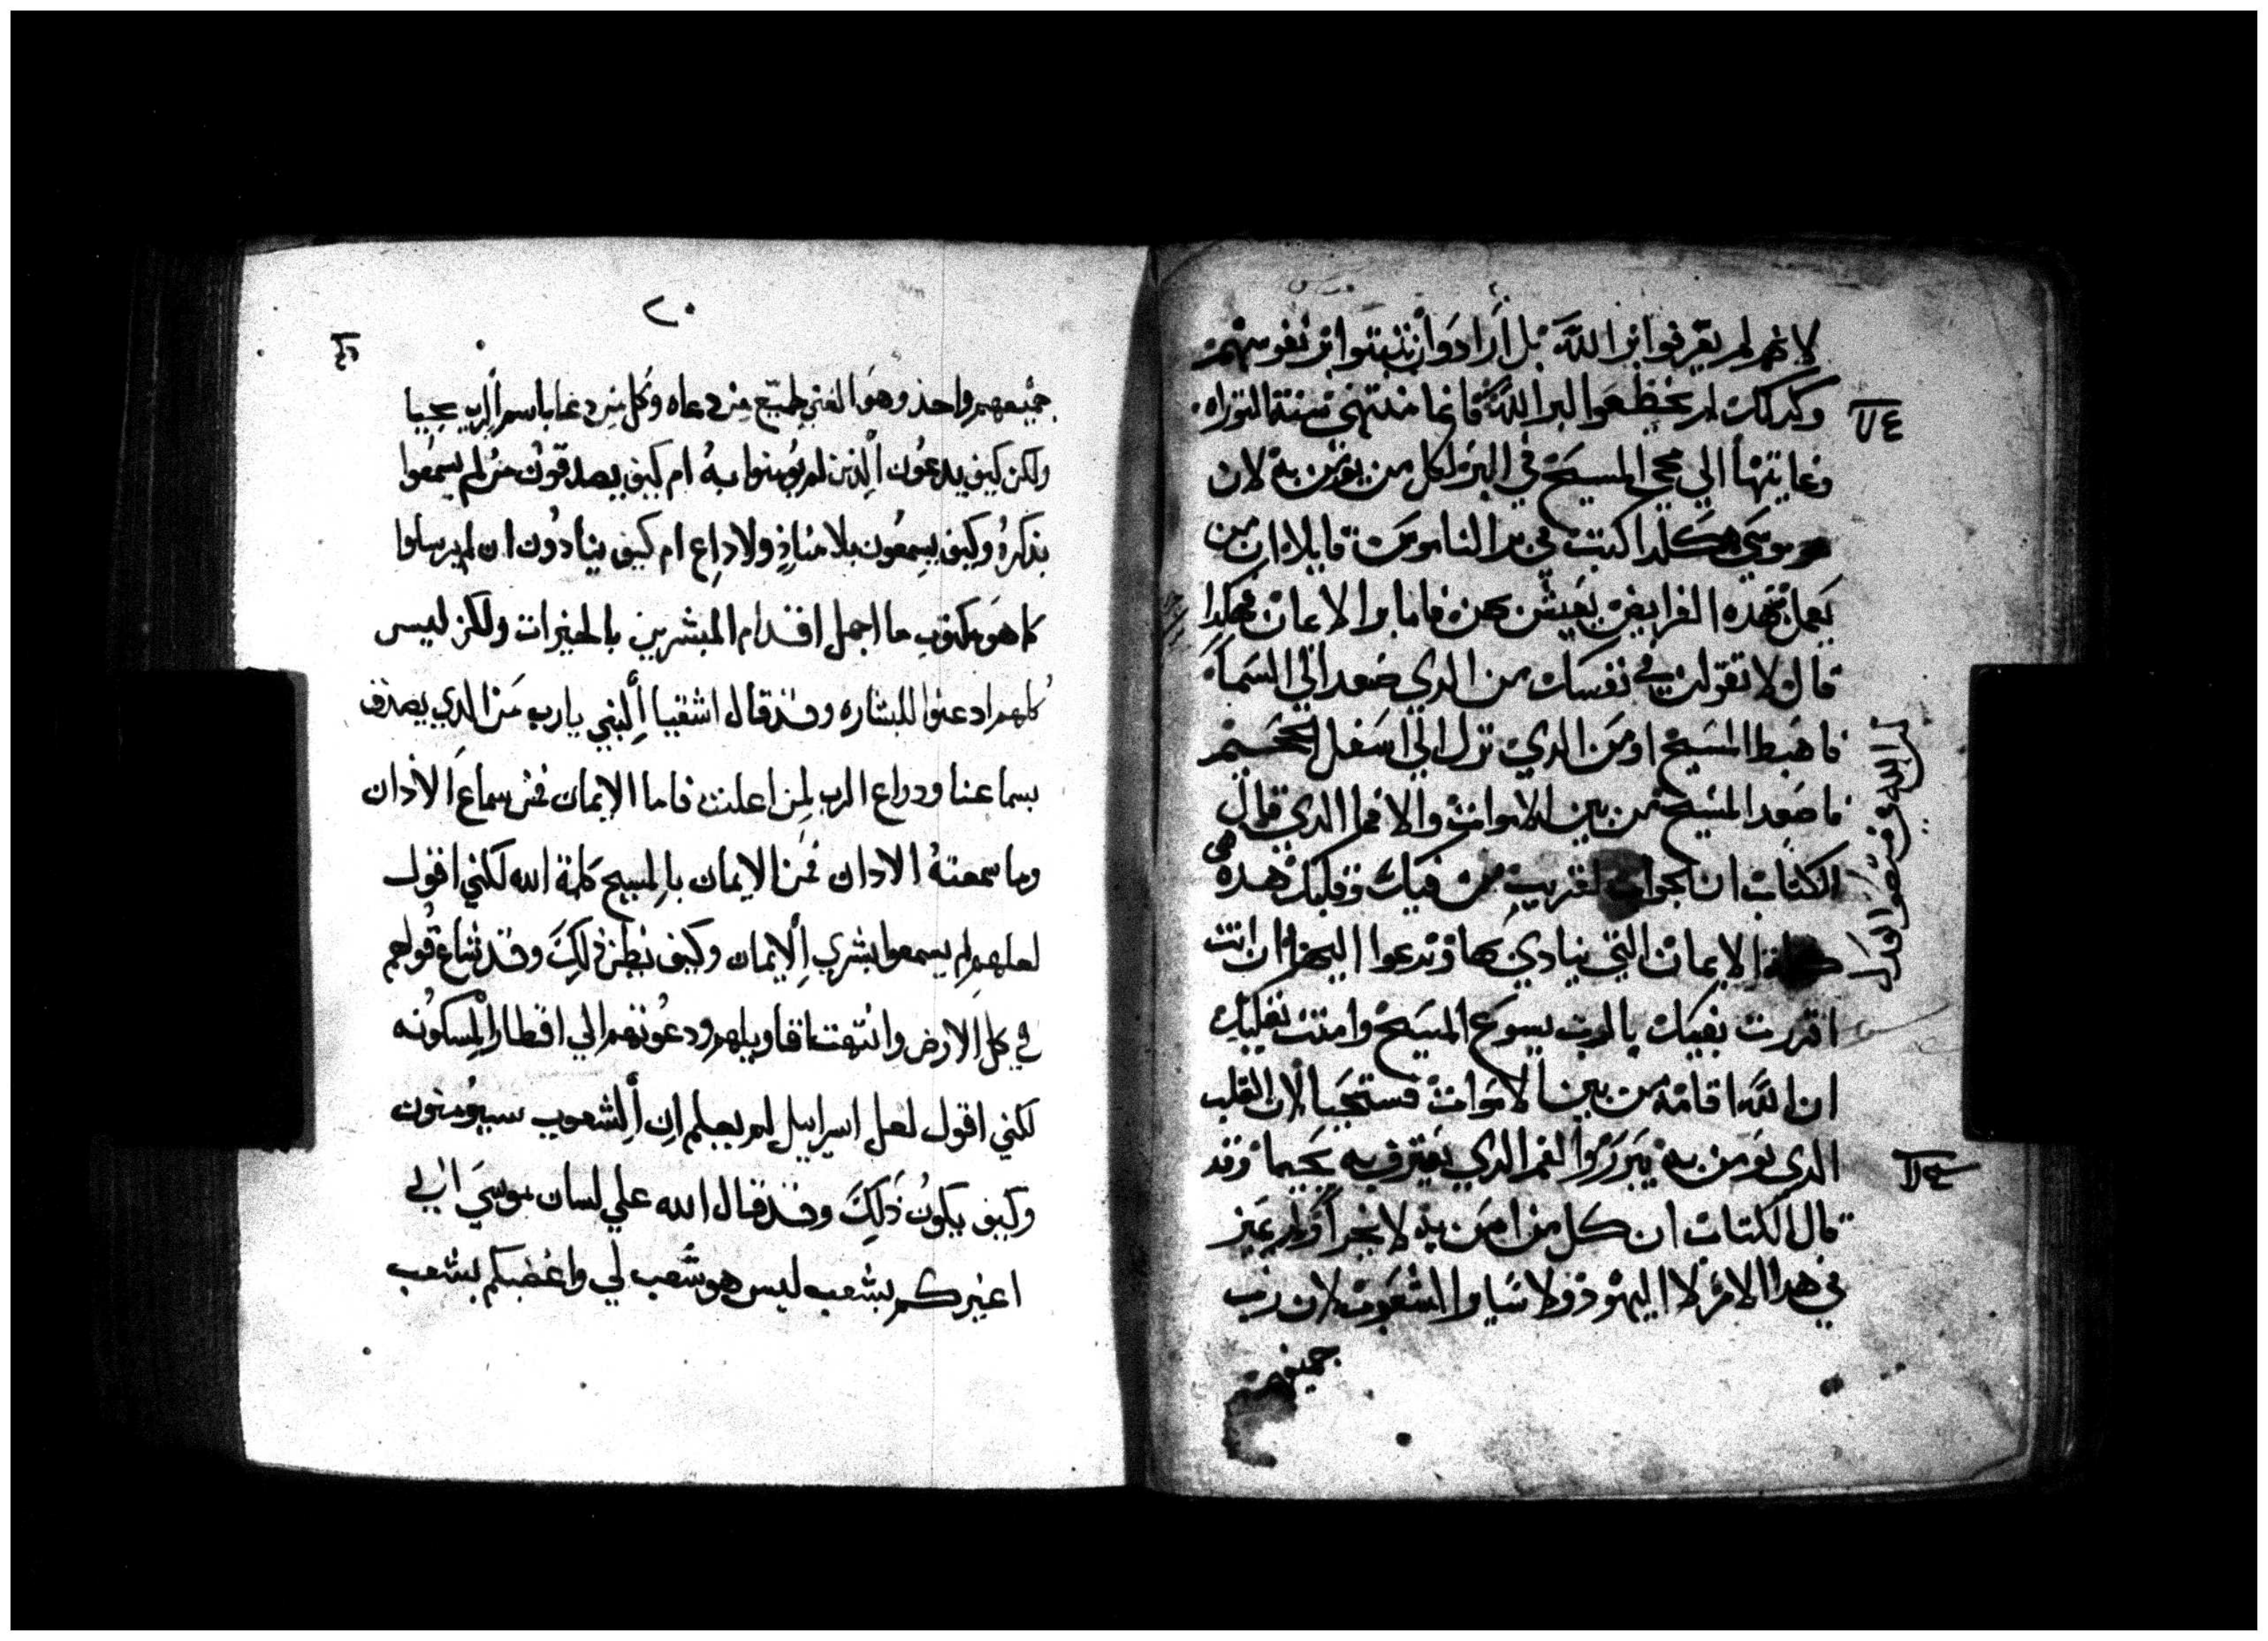 لانهم لم يعرفوا بر الله بل ارادوا ان يثبتوا بر نفوسهم
وكدلك لم يخظعوا لبر الله فانما منتهي سنة التوراه
وغايتها الي مجي المسيح في البر لكل من يومن به لان
موسي هكدا كتب في بر الناموس قايلا ان من
يعمل بهده الفرايض يعيش بهن فاما بر الايمان فهكدا
قال لا تقولن في نفسك من الدي صعد الي السما
فاهبط المسيح او من الدي نزل الي اسفل الجحيم
فاصعد المسيح من بين الاموات والا فما الدي قال
الكتاب ان الجواب لقريب من فيك وقلبك هده هي
كلمة الايمان التي ينادي بها وندعوا اليها ان انت
اقررت بفيك بالرب يسوع المسيح وامنت بقلبك
ان الله اقامه من بين الاموات فستحيا لان القلب
الدي يومن به يبرر والفم الدي يعترف به يحيا وقد
قال الكتاب ان كل من امن به لا يخزا ولم يميز
في هدا الامر لا اليهود ولا ساير الشعوب لان رب
جميعهم
٢٠
جميعهم واحد وهو الغني لجميع من دعاه وكل من دعا باسم الرب يحيا
ولكن كيف يدعون الذين لم يومنوا به ام كيف يصدقون من لم يسمعوا
بذكره وكيف يسمعون بلا مناذٍ ولا داعٍ ام كيف ينادون ان لم يرسلوا
كما هو مكتوب ما اجمل اقدام المبشرين بالخيرات ولكن ليس
كلهم ادعنوا للبشاره وقد قال اشعيا النبي يارب من الدي يصدق
بسماعنا ودراع الرب لمن اعلنت فاما الايمان فمن سماع الاذان
وما سمعته الادان فمن الايمان بالمسيح كلمة الله لكني اقول
لعلهم لم يسمعوا بشري الايمان وكيف نظن ذلك وقد شاع قولهم
في كل الارض وانتهت اقاويلهم ودعوتهم الي اقطار المسكونه
لكني اقول لعل اسراييل لم يعلم ان الشعوب سيومنون
وكيف يكون ذلك وقد قال الله علي لسان موسي اني
اغيركم بشعب ليس هو شعب لي واغضبكم بشعب